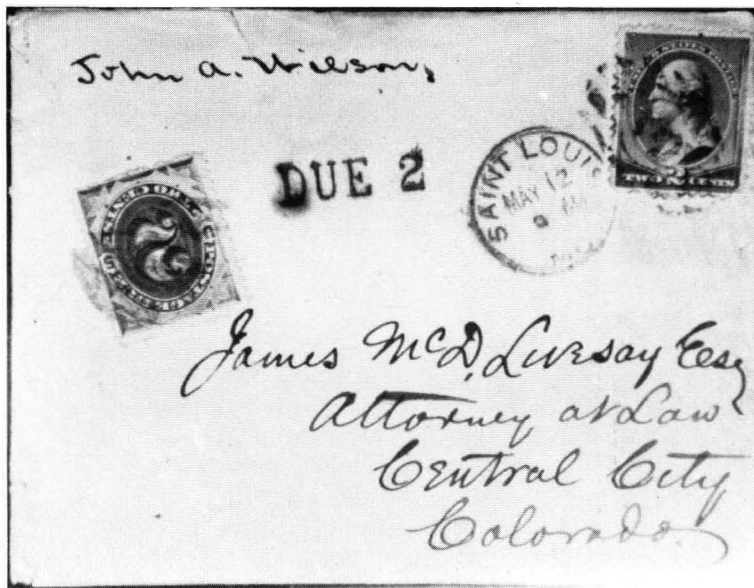 John A. Wilson,
DUE 2
SAINT LOUIS
MAY 12
9 AM
2
TWO CENTS
2
James McD. Livesay Esq
Attorney at Law
Central City
Colorado